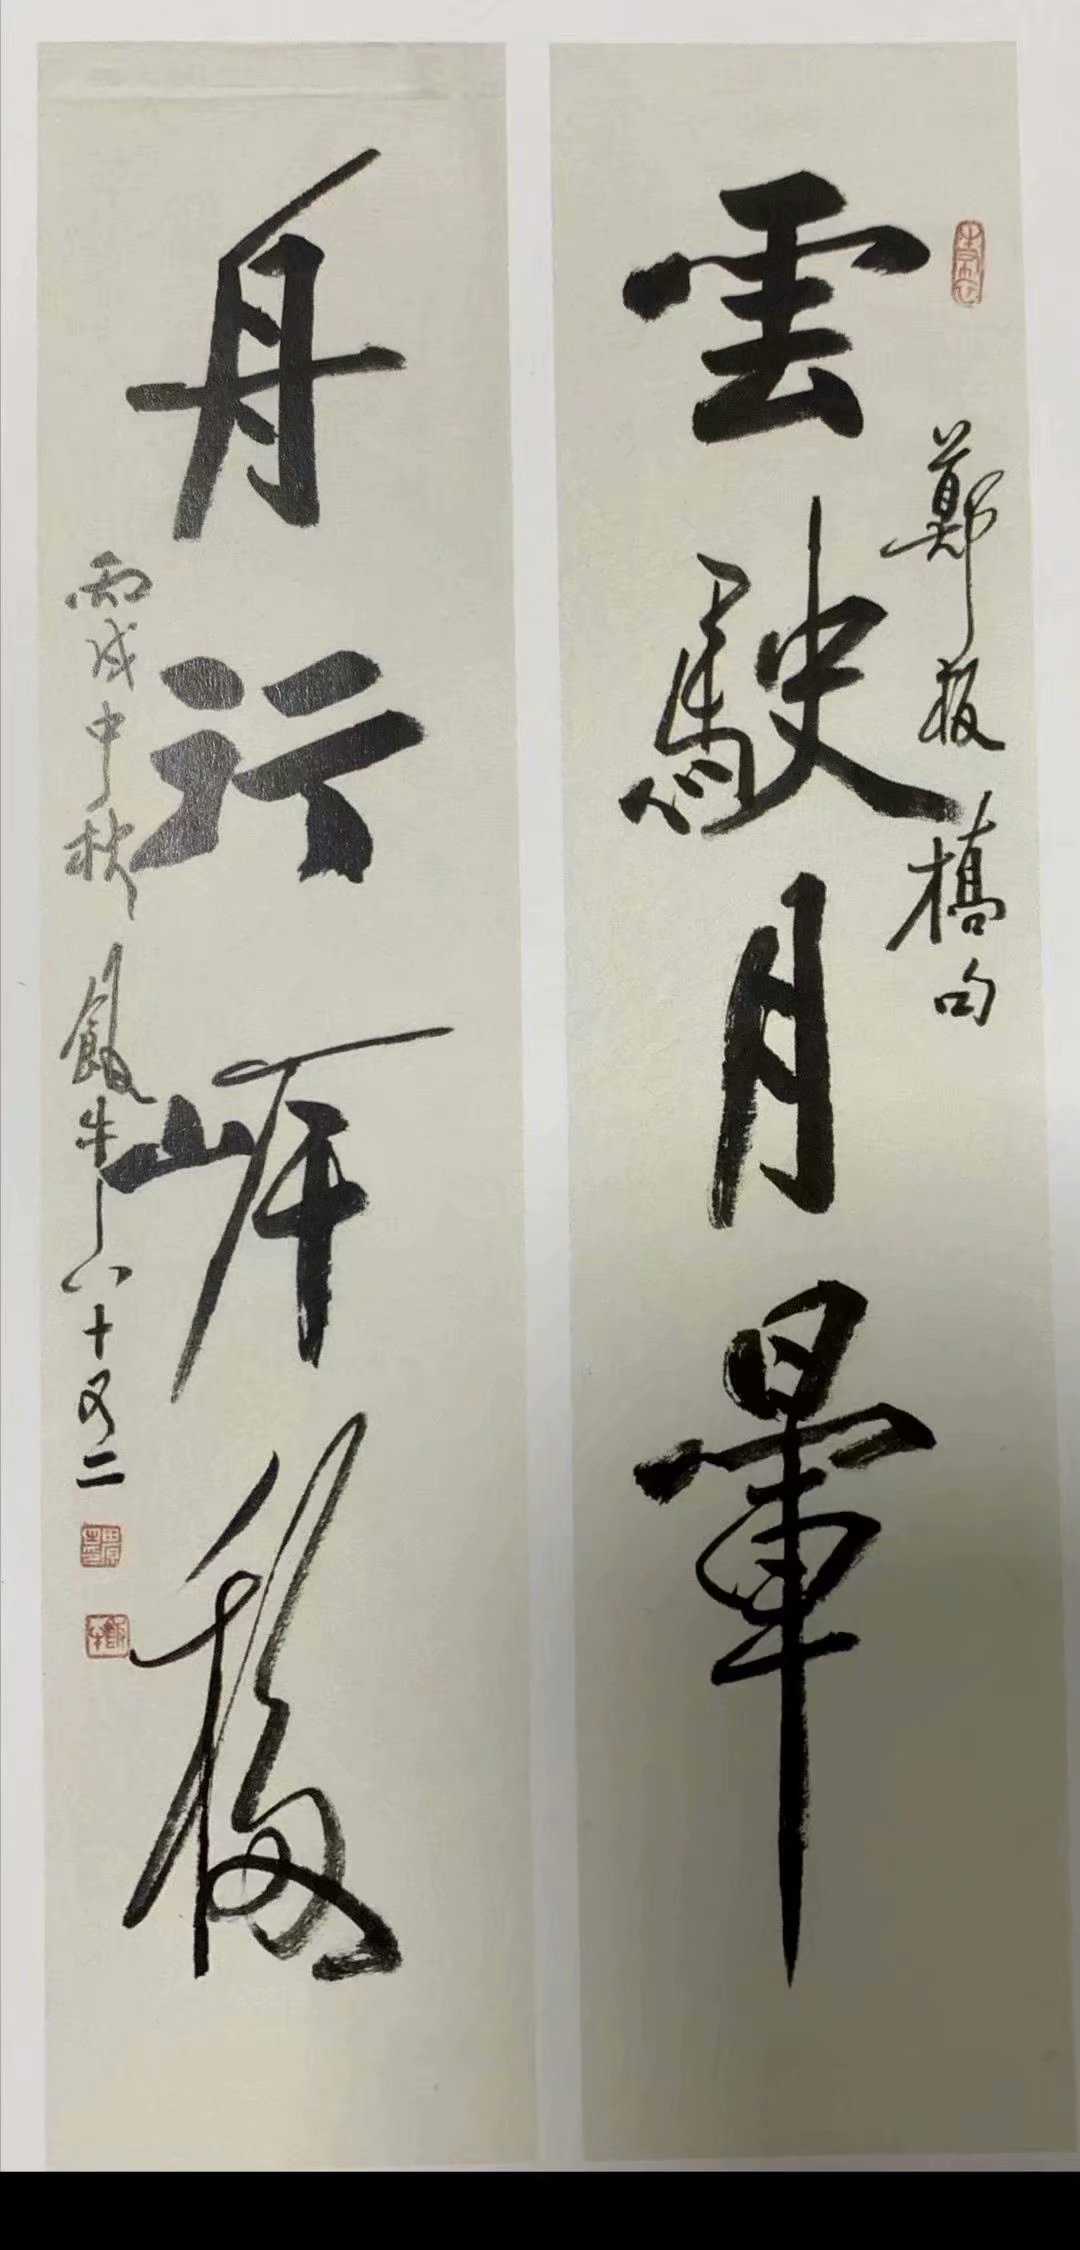 鄭板橋句
雲駛月暈
舟行岸移
丙戌中秋 飯牛八十又二
飯牛